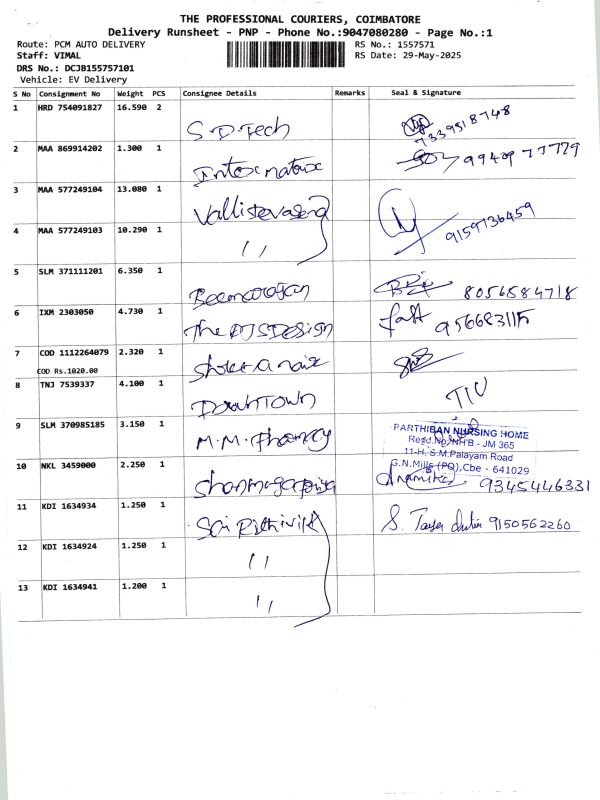 THE PROFESSIONAL COURIERS, COIMBATORE
Delivery Runsheet - PNP - Phone No.:9047080280 - Page No.:1
Route: PCM AUTO DELIVERY
RS No.: 1557571
Staff: VIMAL
RS Date: 29-May-2025
DRS No.: DCJB155757101
Vehicle: EV Delivery
S No Consignment No Weight PCS Consignee Details Remarks Seal & Signature
1 HRD 754091827 16.590 2
S-D-Tech 7339518748
2 MAA 869914202 1.300 1
3 MAA 577249104 13.080 1
4 MAA 577249103 10.290 1
" 9159736459
5 SLM 371111201 6.350 1
8056584718
6 IXM 2303050 4.730 1
The DJS Design
7 COD 1112264079 2.320 1
COD Rs.1020.00
8 TNJ 7539337 4.100 1
DownTown
9 SLM 370985185 3.150 1
M.M. Phamcy
PARTHIBAN NURSING HOME
Regd.No/NHB - JM 365
11-H, S.M.Palayam Road
G.N.Mills (PO),Cbe - 641029
10 NKL 3459000 2.250 1
9345446331
11 KDI 1634934 1.250 1
Sri Rithivik 9150562260
12 KDI 1634924 1.250 1
"
13 KDI 1634941 1.200 1
"